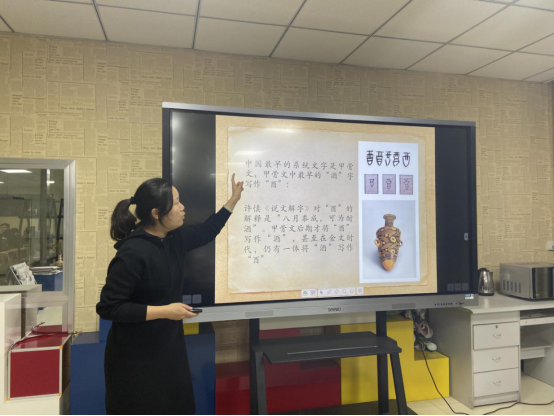 中国最早的系统文字是甲骨
文，甲骨文中最早的“酒”字
写作“酉”；
许慎《说文解字》对“酉”的
解释是“八月黍成，可为酎
酒”。甲骨文后期才将“酉”
写作“酒”，甚至在金文时
代，仍有一体将“酒”写作
“酉”